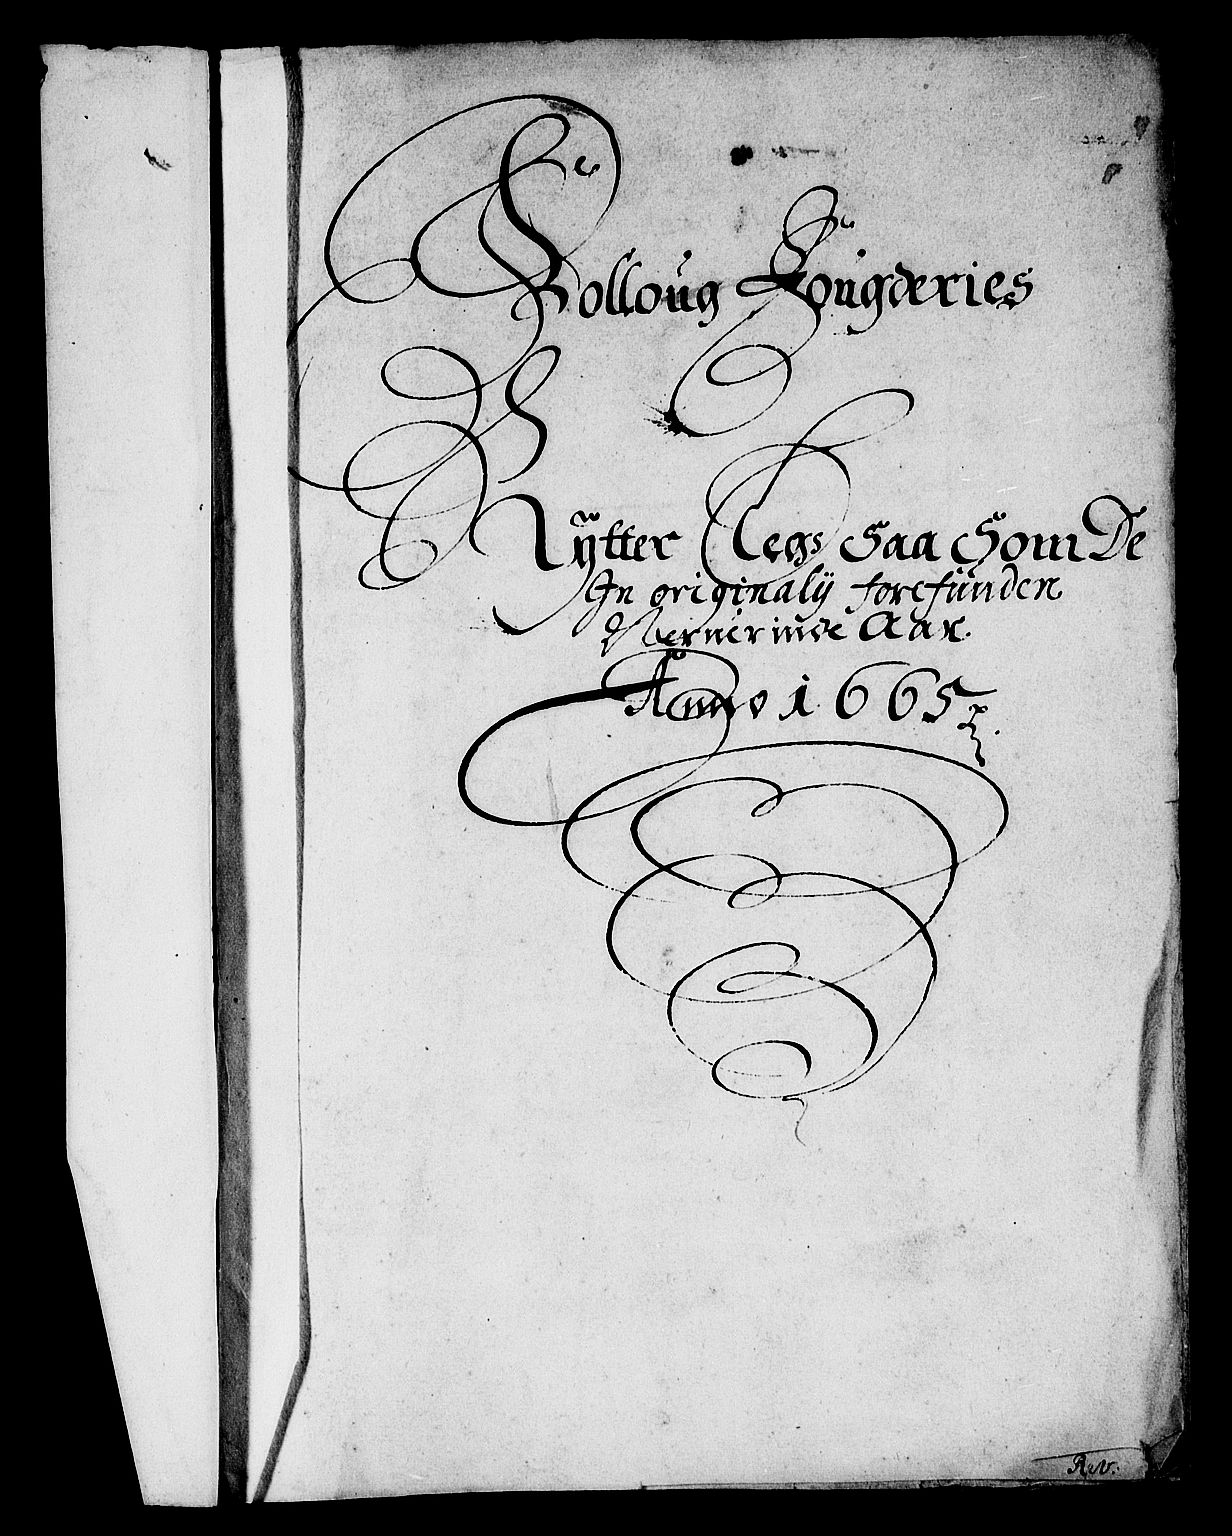 Folloug Fougderies
Rÿtter Legs Saa Som De
In originalÿ forefunden
Nerværinde Aar.
Anno 1665
Rev.